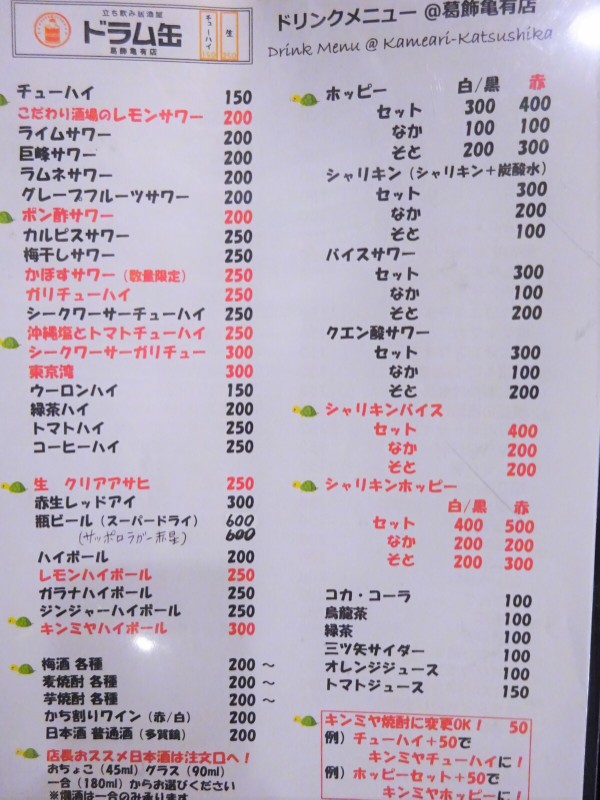 立ち飲み居酒屋
ドラム缶
葛飾亀有店
チューハイ
生
ドリンクメニュー @葛飾亀有店
Drink Menu @ Kameari-Katsushika
チューハイ 150
こだわり酒場のレモンサワー 200
ライムサワー 200
巨峰サワー 200
ラムネサワー 200
グレープフルーツサワー 200
ポン酢サワー 200
カルピスサワー 250
梅干しサワー 250
かぼすサワー（数量限定） 250
ガリチューハイ 250
シークワーサーチューハイ 250
沖縄塩とトマトチューハイ 250
シークワーサーガリチュー 300
東京湾 300
ウーロンハイ 150
緑茶ハイ 200
トマトハイ 250
コーヒーハイ 250
生 クリアアサヒ 250
赤生レッドアイ 300
瓶ビール（スーパードライ） 600
（サッポロラガー赤星） 600
ハイボール 200
レモンハイボール 250
ガラナハイボール 250
ジンジャーハイボール 250
キンミヤハイボール 300
梅酒 各種 200 ～
麦焼酎 各種 200 ～
芋焼酎 各種 200 ～
かち割りワイン（赤/白） 200
日本酒 普通酒（多賀鶴） 200
店長おススメ日本酒は注文口へ！
おちょこ（45ml）グラス（90ml）
一合（180ml）からお選びください
※燗酒は一合のみ承ります
ホッピー 白/黒 赤
セット 300 400
なか 100 100
そと 200 300
シャリキン（シャリキン＋炭酸水）
セット 300
なか 200
そと 100
バイスサワー
セット 300
なか 100
そと 200
クエン酸サワー
セット 300
なか 100
そと 200
シャリキンバイス
セット 400
なか 200
そと 200
シャリキンホッピー
白/黒 赤
セット 400 500
なか 200 200
そと 200 300
コカ・コーラ 100
烏龍茶 100
緑茶 100
三ツ矢サイダー 100
オレンジジュース 100
トマトジュース 150
キンミヤ焼酎に変更OK！ 50
例）チューハイ＋50で
キンミヤチューハイに！
例）ホッピーセット＋50で
キンミヤホッピーに！